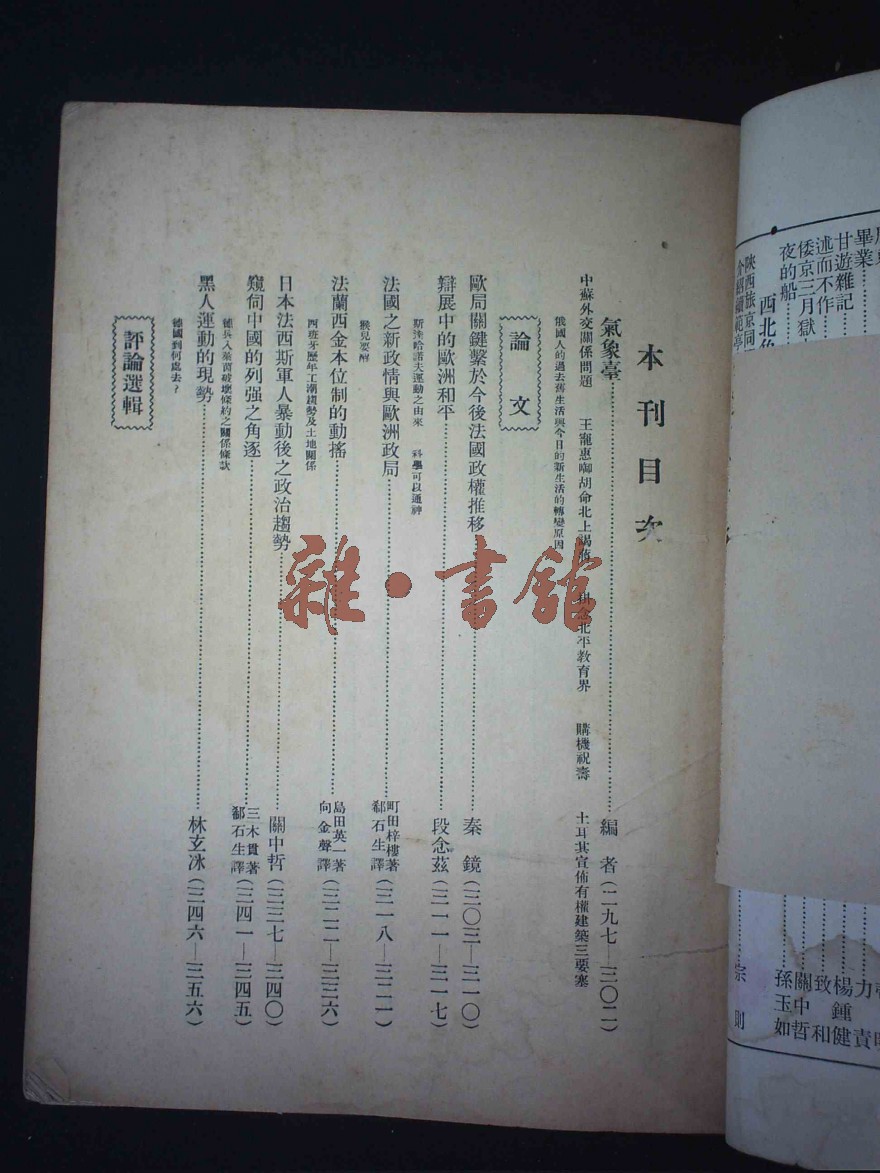 本刊目次
氣象臺……編者(二九七—三〇二)
中蘇外交關係問題 王寵惠啣胡命北上謁蔣 北平教育界 購機祝壽 土耳其宣佈有權建築三要塞
俄國人的過去舊生活與今日的新生活的轉變原因
論文
歐局關鍵繫於今後法國政權推移……秦鏡(三〇三—三一〇)
辯展中的歐洲和平……段念茲(三一一—三一七)
斯達哈諾夫運動之由來 科學可以通神
法國之新政情與歐洲政局……町田梓樓著 郗石生譯(三一八—三二一)
猴兒要醒
法蘭西金本位制的動搖……島田英一著 向金聲譯(三二二—三三六)
西班牙歷年工潮趨勢及土地關係
日本法西斯軍人暴動後之政治趨勢……關中哲(三三七—三四〇)
窺伺中國的列强之角逐……三木貫著 郗石生譯(三四一—三四五)
德兵入萊茵破壞條約之關係條款
黑人運動的現勢……林玄冰(三四六—三五六)
德國到何處去?
評論選輯
雜·書館
畢業
甘遊雜記
述而不作
倭京三月獄
夜的船
西北
陝西旅京同
力責
楊鍾健
致和
關中哲
孫玉如
宗則